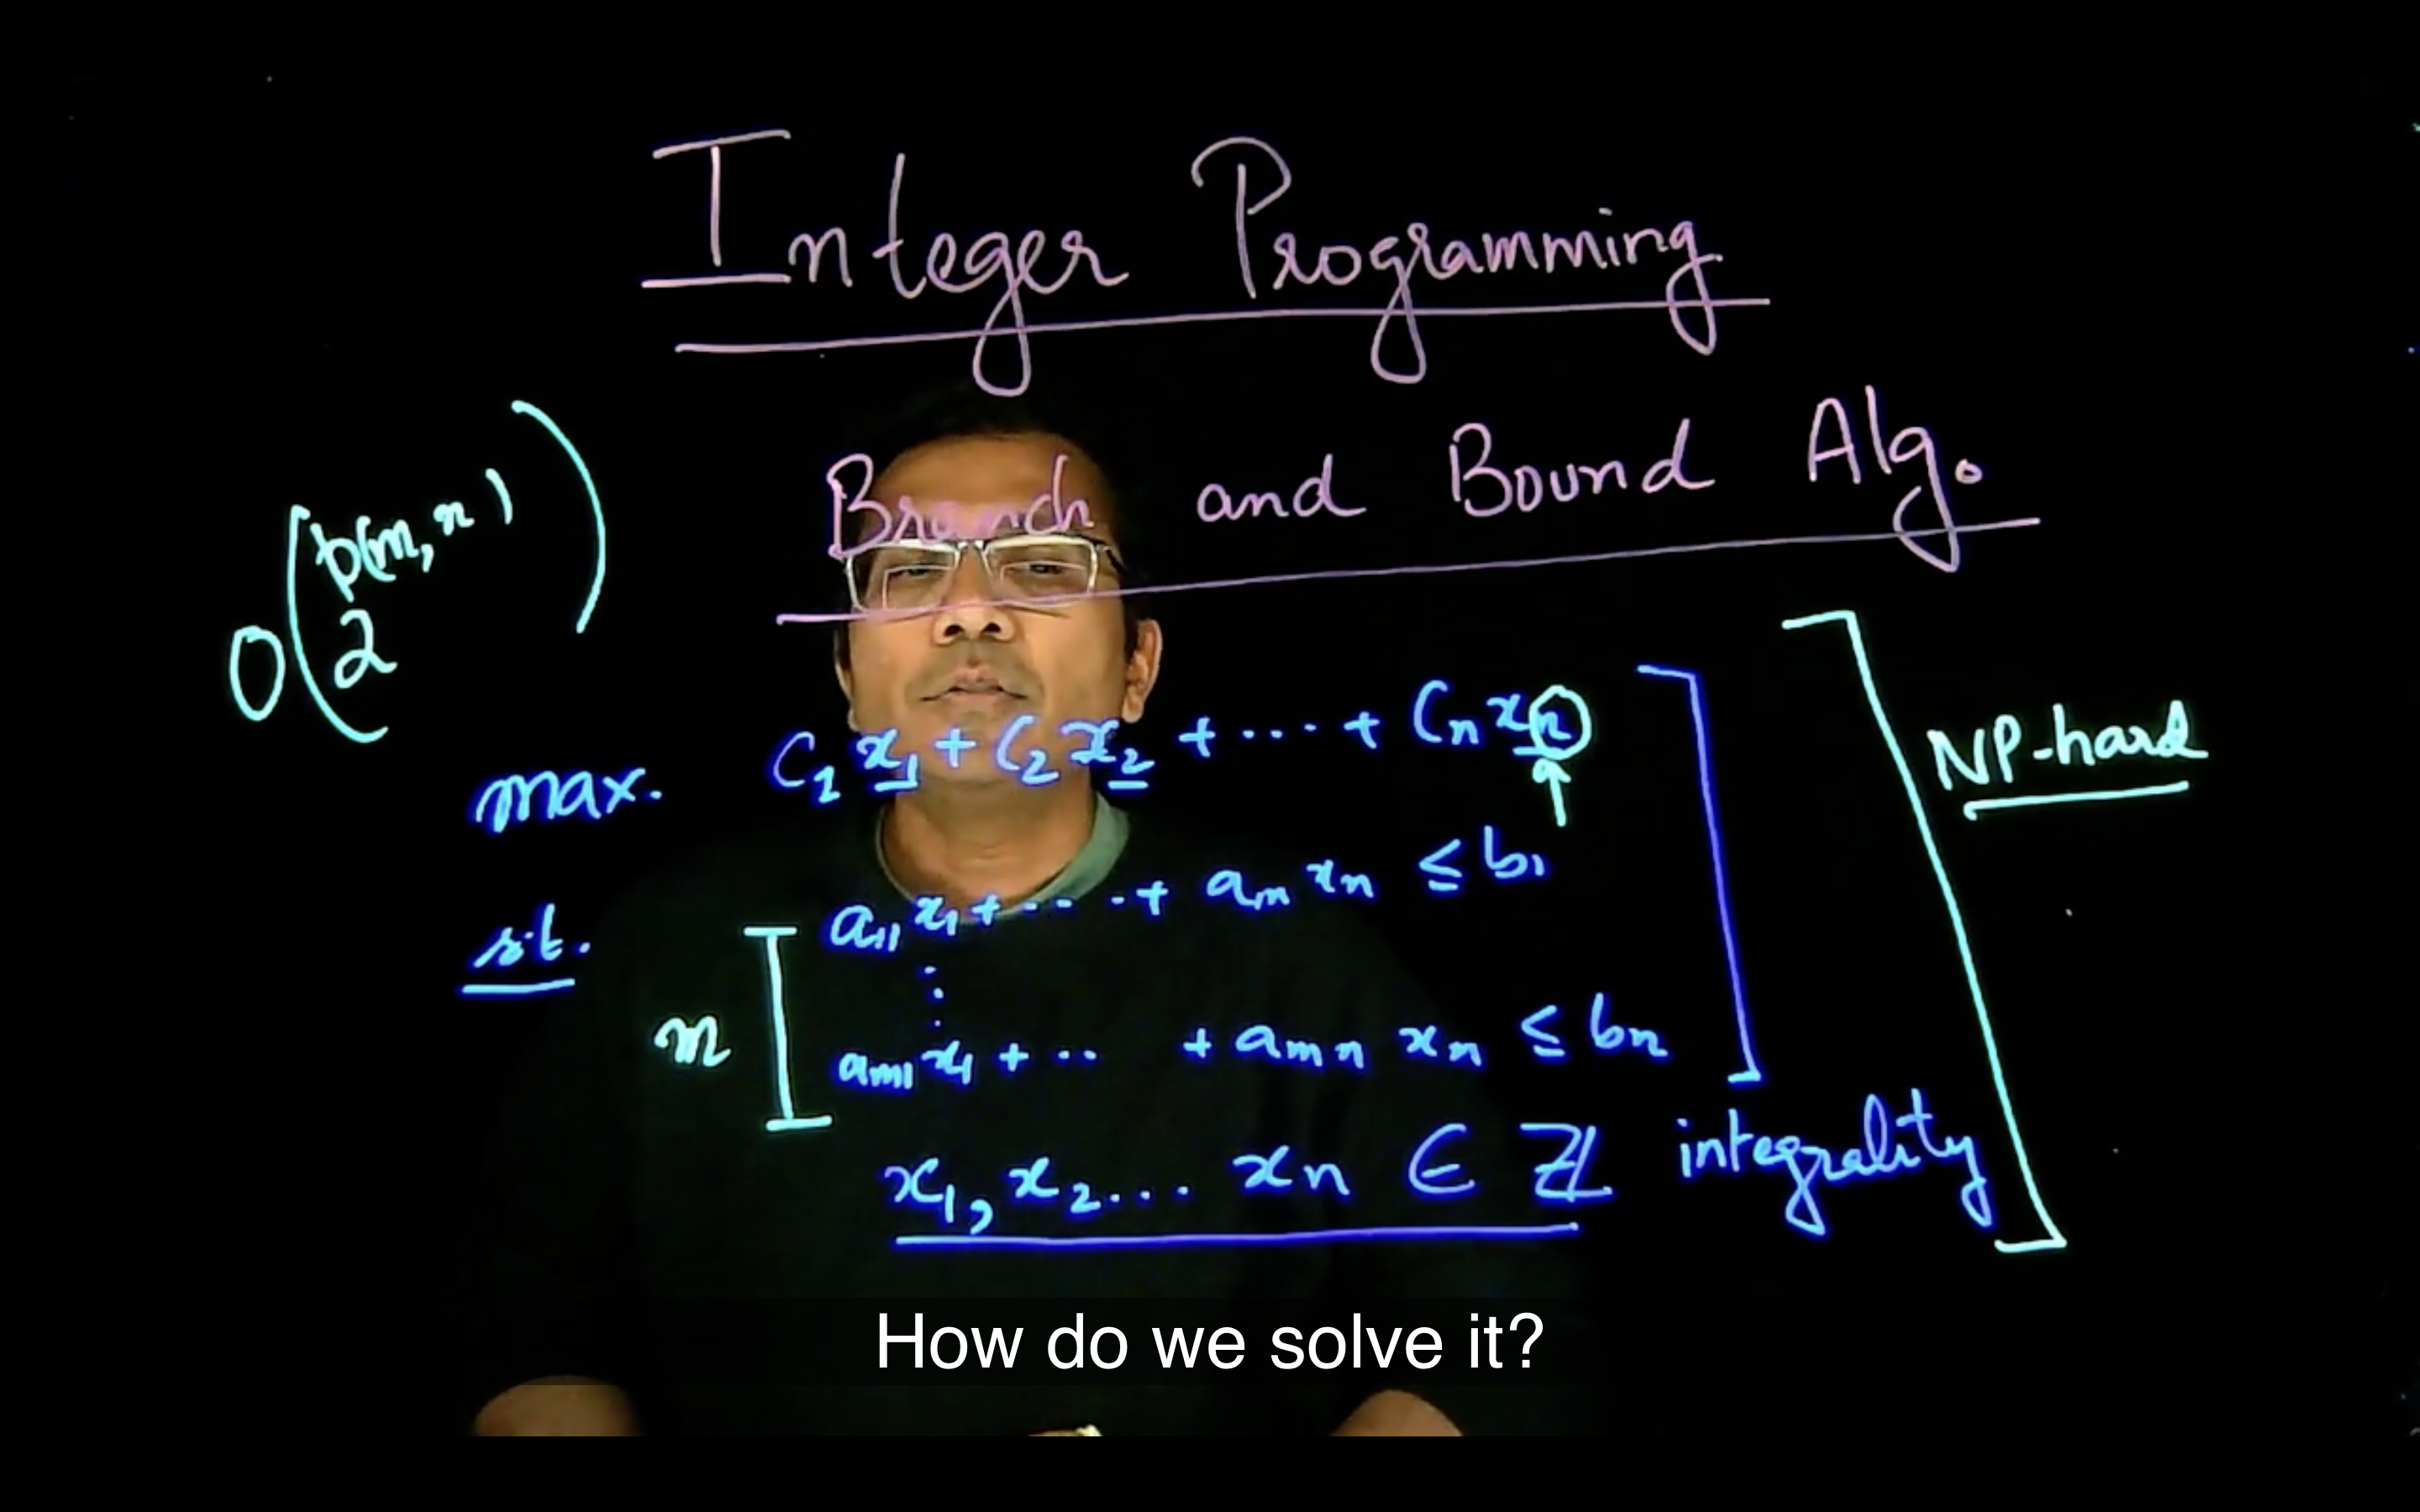 Integer Programming
Branch and Bound Alg.
O(2^p(m,n))
max. C₁x₁ + C₂x₂ + ··· + Cₙxₙ
NP-hard
s.t. a₁₁x₁ + ··· + a₁ₙxₙ ≤ b₁
⋮
m
aₘ₁x₁ + ·· + aₘₙxₙ ≤ bₙ
x₁, x₂... xₙ ∈ ℤ integrality
How do we solve it?